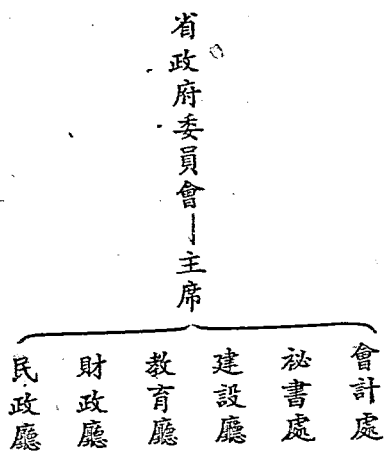 省政府委員會—主席
會計處
祕書處
建設廳
教育廳
財政廳
民政廳